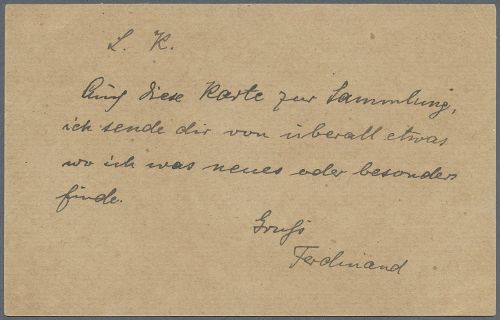 L. K.
Auch diese Karte zur Sammlung,
ich sende dir von überall etwas
wo ich was neues oder besonders
finde.
Gruß
Ferdinand